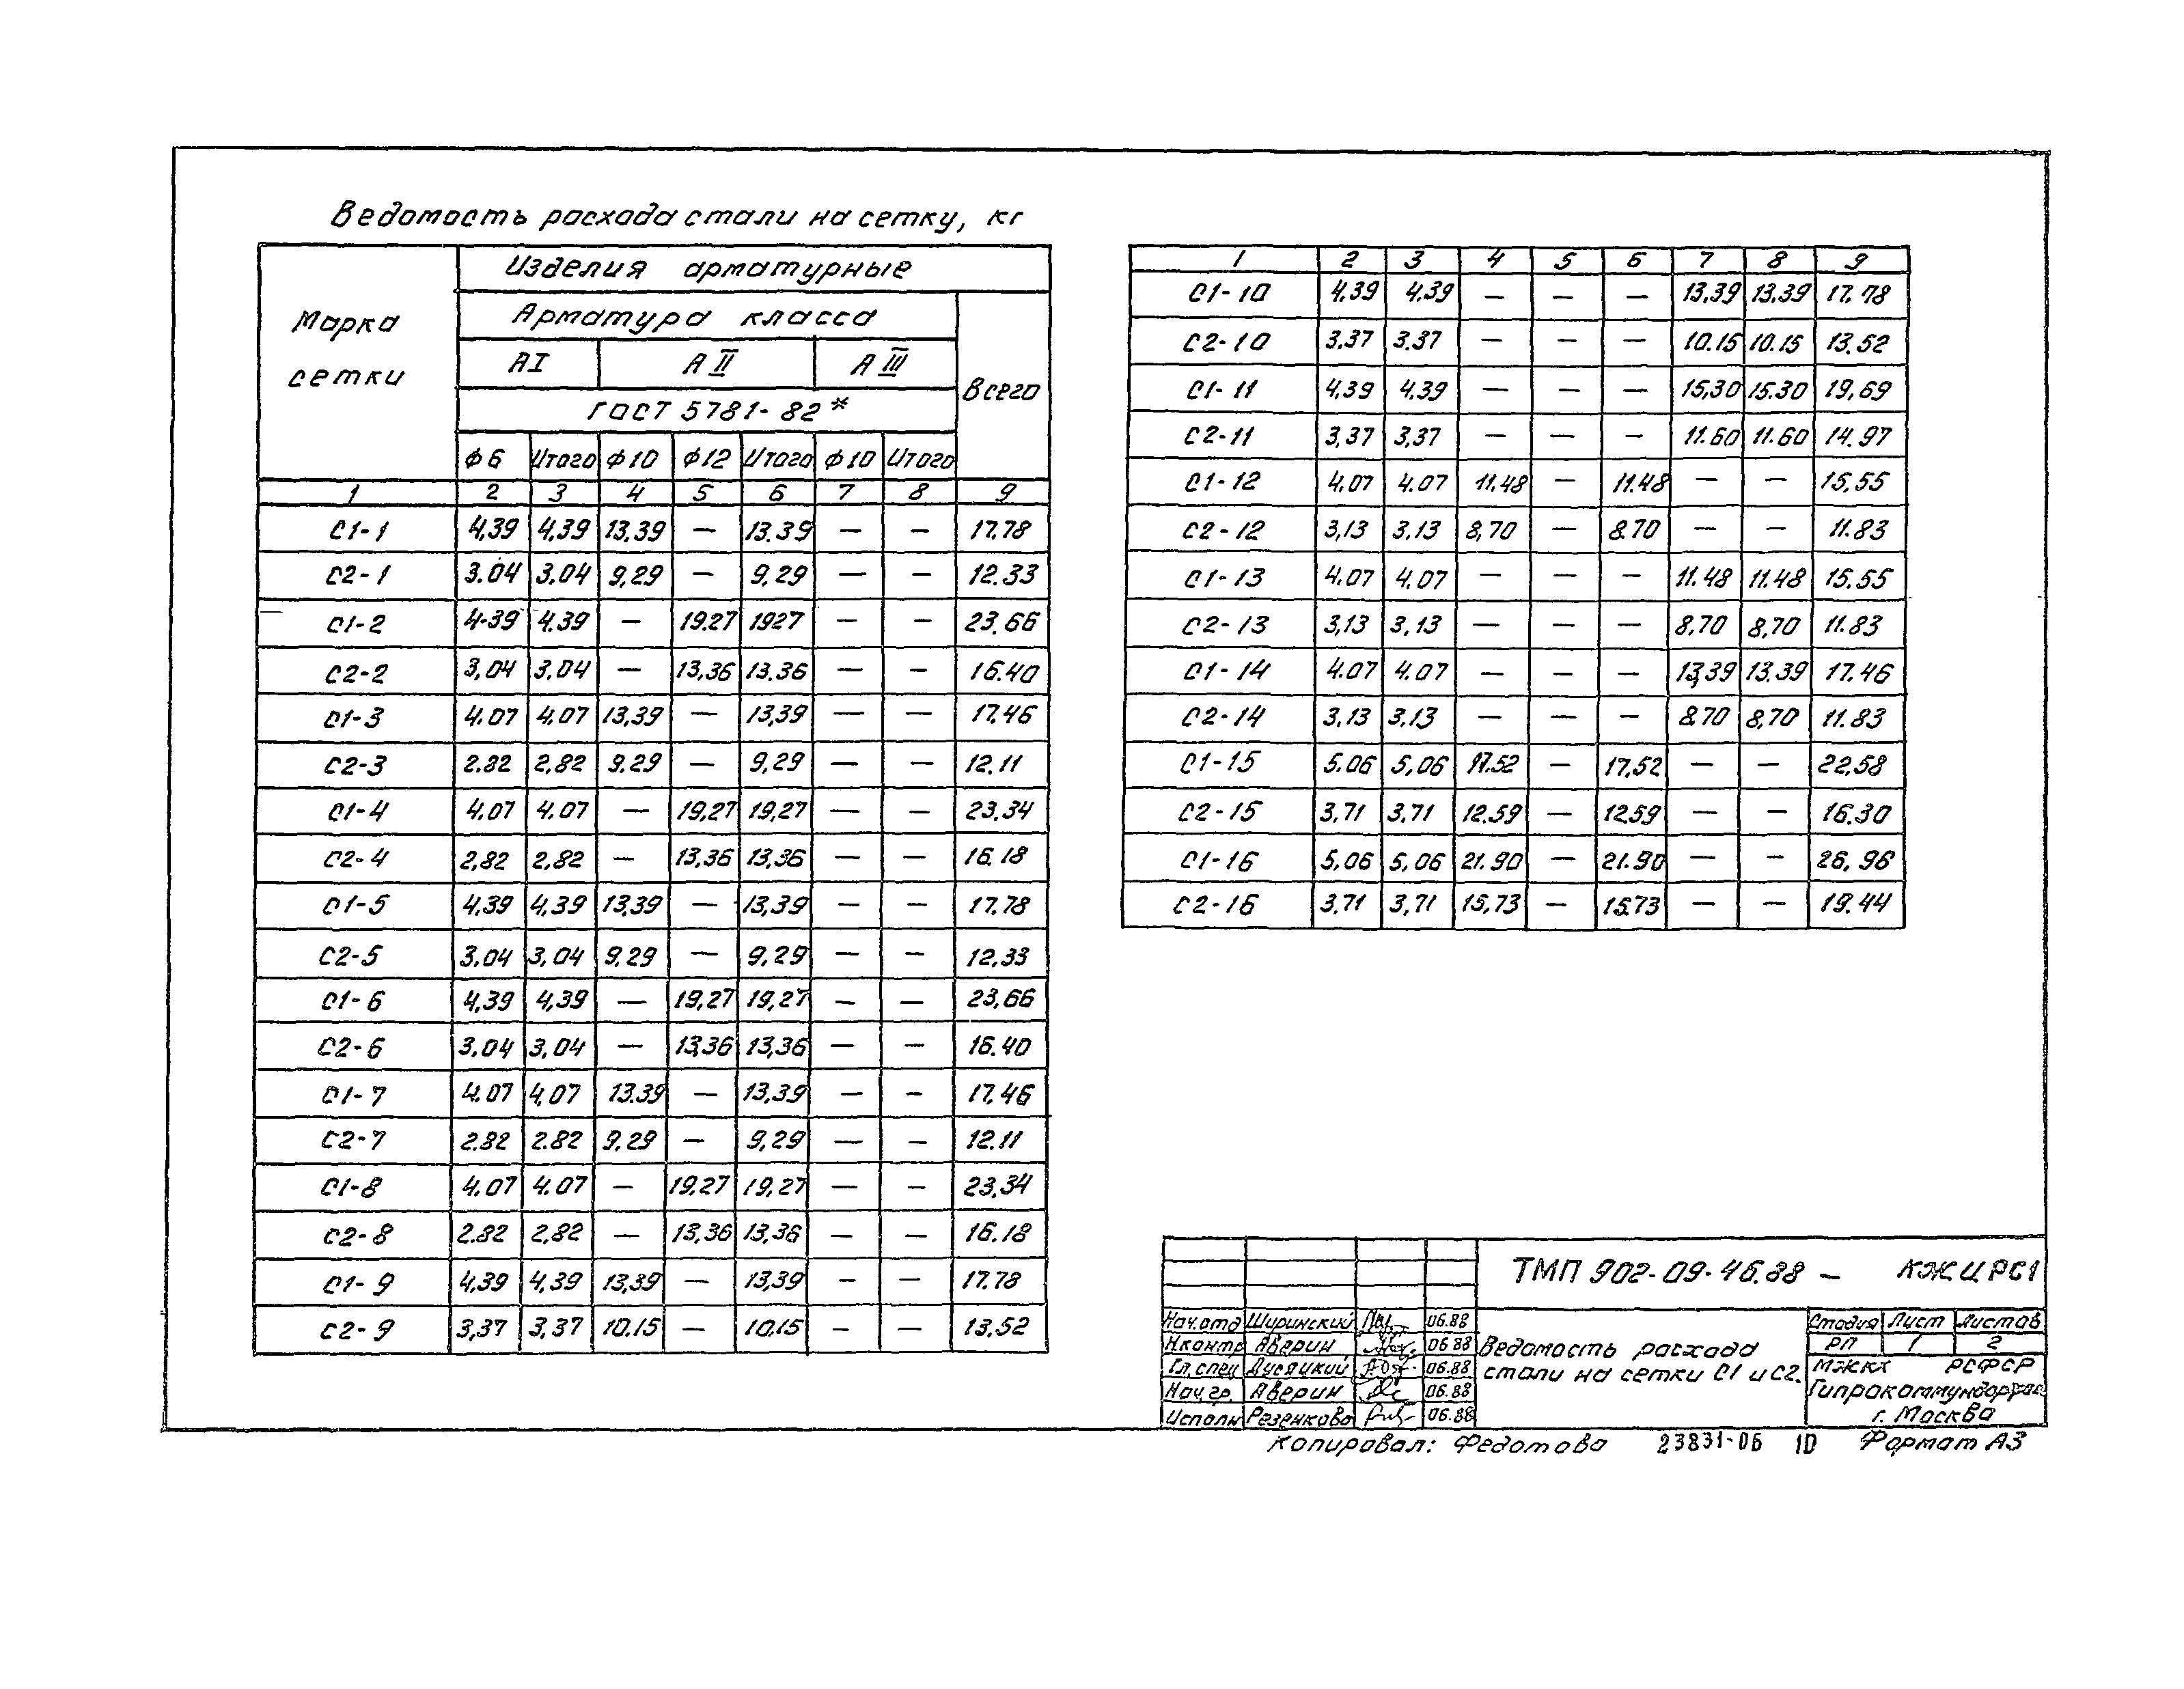 Ведомость расхода стали на сетку, кг
Марка сетки
Изделия арматурные
Арматура класса
Всего
АI АII АIII
ГОСТ 5781-82*
Ф6 Итого Ф10 Ф12 Итого Ф10 Итого
1 2 3 4 5 6 7 8 9
С1-1 4,39 4,39 13,39 — 13.39 — — 17.78
С2-1 3.04 3,04 9,29 — 9,29 — — 12.33
С1-2 4.39 4.39 — 19.27 1927 — — 23.66
С2-2 3,04 3,04 — 13,36 13.36 — — 16.40
С1-3 4.07 4,07 13,39 — 13,39 — — 17.46
С2-3 2.82 2,82 9.29 — 9,29 — — 12.11
С1-4 4,07 4.07 — 19,27 19,27 — — 23.34
С2-4 2,82 2,82 — 13,36 13,36 — — 16.18
С1-5 4,39 4,39 13,39 — 13,39 — — 17.78
С2-5 3.04 3,04 9.29 — 9.29 — — 12,33
С1-6 4,39 4,39 — 19,27 19,27 — — 23,66
С2-6 3.04 3,04 — 13,36 13,36 — — 16.40
С1-7 4.07 4,07 13.39 — 13,39 — — 17,46
С2-7 2.82 2.82 9,29 — 9,29 — — 12.11
С1-8 4.07 4.07 — 19.27 19,27 — — 23,34
С2-8 2.82 2,82 — 13,36 13,36 — — 16.18
С1-9 4,39 4,39 13,39 — 13,39 — — 17.78
С2-9 3,37 3,37 10.15 — 10,15 — — 13,52
1 2 3 4 5 6 7 8 9
С1-10 4,39 4,39 — — — 13,39 13,39 17.78
С2-10 3,37 3.37 — — — 10.15 10.15 13.52
С1-11 4,39 4,39 — — — 15,30 15.30 19,69
С2-11 3,37 3,37 — — — 11.60 11.60 14.97
С1-12 4,07 4.07 11.48 — 11.48 — — 15,55
С2-12 3,13 3,13 8,70 — 8.70 — — 11.83
С1-13 4.07 4,07 — — — 11.48 11.48 15.55
С2-13 3,13 3,13 — — — 8,70 8,70 11.83
С1-14 4.07 4.07 — — — 13,39 13.39 17.46
С2-14 3,13 3,13 — — — 8.70 8,70 11.83
С1-15 5.06 5,06 17.52 — 17,52 — — 22,58
С2-15 3,71 3,71 12.59 — 12.59 — — 16.30
С1-16 5,06 5,06 21.90 — 21.90 — — 26,96
С2-16 3,71 3,71 15,73 — 15.73 — — 19.44
ТМП 902-09-46.88 – КЖИ РС1
Нач.отд Ширинский 06.88
Н.контр Аверин 06 88
Гл.спец Дусяцкий 06.88
Нач.гр. Аверин 06.88
Исполн Резенкова 06.88
Ведомость расхода
стали на сетки С1 и С2.
Стадия Лист Листов
РП 1 2
МЖКХ РСФСР
г. Москва
Копировал: Федотова 23831-06 10 Формат А3